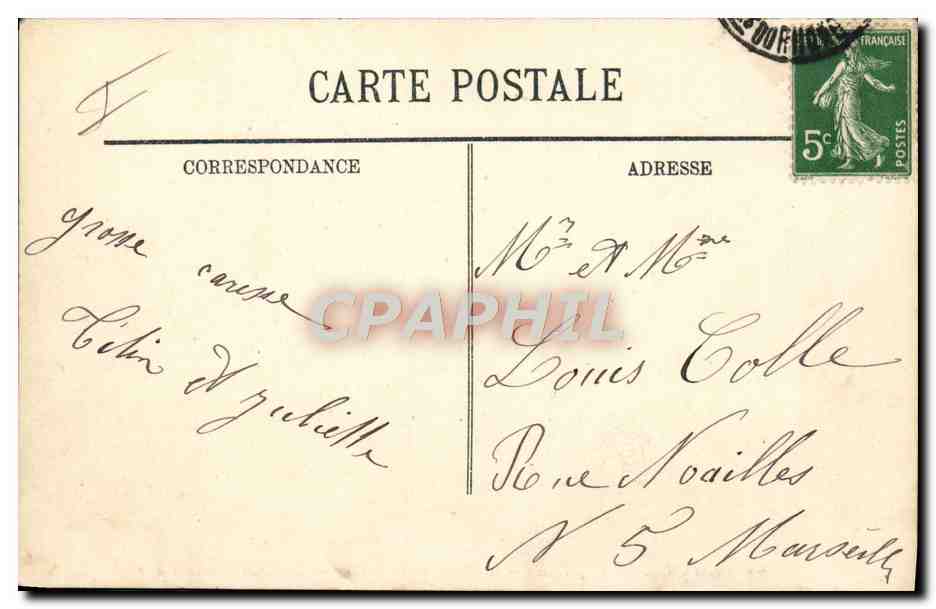 DU RHONE
CARTE POSTALE
FRANÇAISE
5c
POSTES
CORRESPONDANCE
ADRESSE
grosse
caresse
Titin et Juliette
CPAPHIL
Mr et Mme
Louis Colle
Rue Noailles
N 5 Marseille